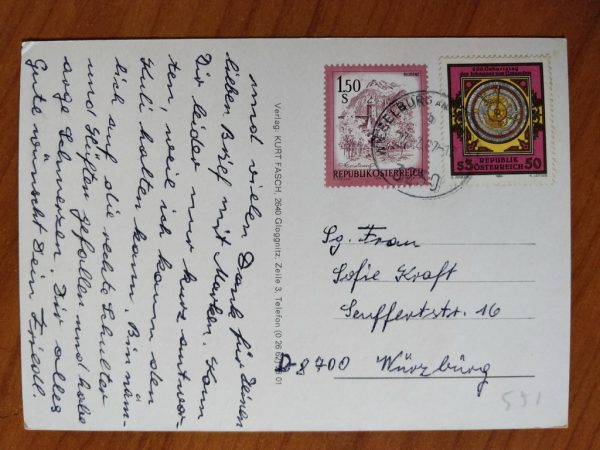 und vielen Dank für Deinen
lieben Brief mit Marken. Kann
Dir leider nur kurz antwor-
ten, weil ich kaum den
Kuli halten kann. Bin näm-
lich auf die rechte Schulter
und Hüften gefallen und habe
arge Schmerzen. Dir alles
Gute wünscht Dein Friedl.
Verlag: KURT FASCH, 2640 Gloggnitz, Zeile 3, Telefon (0 26 62) 01
1,50
S
BLUDENZ
REPUBLIK ÖSTERREICH
WIESELBURG AN
3250
600. Geburtstag
des Johannes von Gmunden
S3 REPUBLIK ÖSTERREICH 50
Sg. Frau
Sofie Kraft
Seuffertstr. 16
D-8700 Würzburg
551